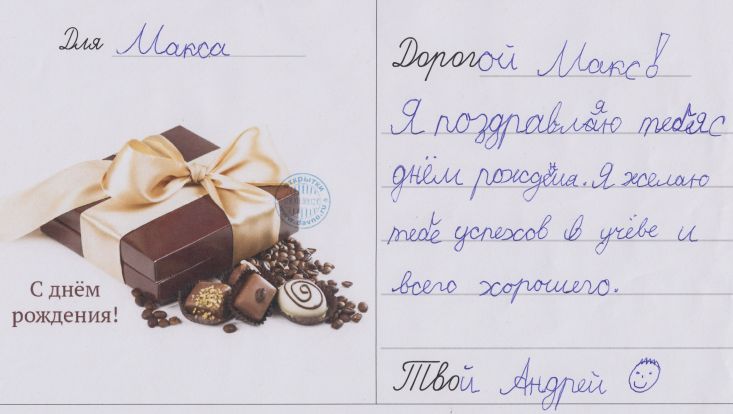 Для Макса
С днём
рождения!
Дорогой Макс!
Я поздравляю тебя с
днём рождения. Я желаю
тебе успехов в учёве и
всего хорошего.
Твой Андрей